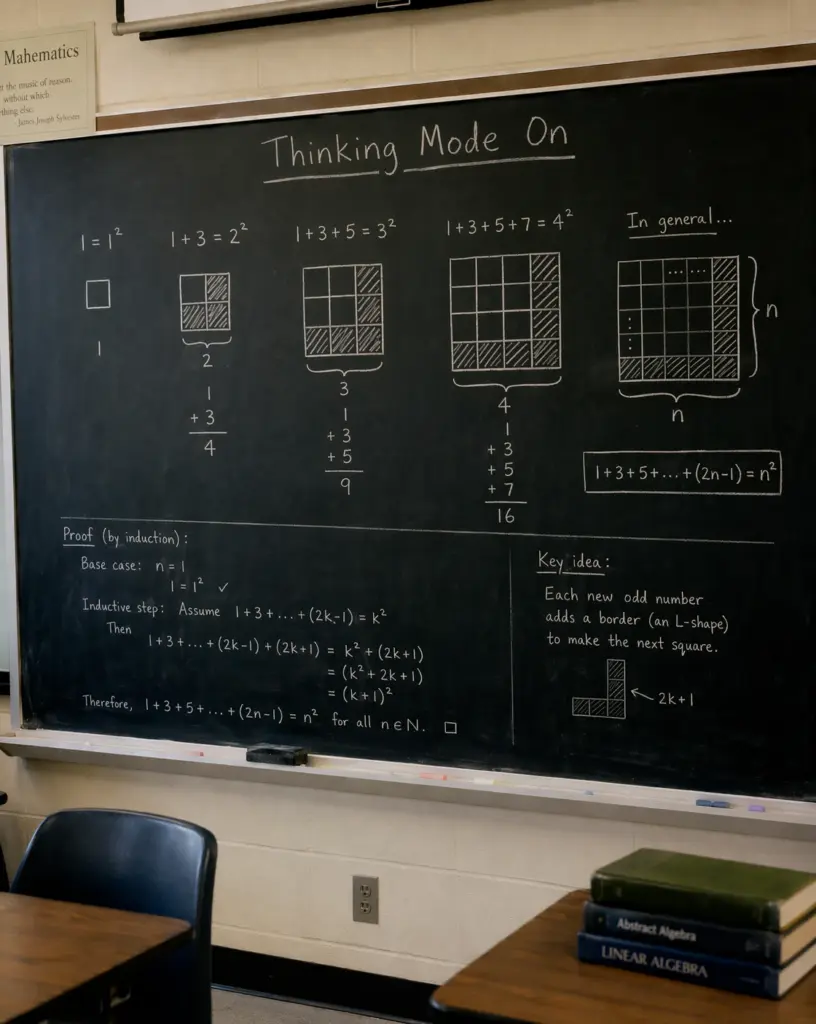 Mahematics
t the music of reason.
without which
thing else.
- James Joseph Sylvester
Thinking Mode On
1 = 1²
1
1 + 3 = 2²
2
1
+ 3
4
1 + 3 + 5 = 3²
3
1
+ 3
+ 5
9
1 + 3 + 5 + 7 = 4²
4
1
+ 3
+ 5
+ 7
16
In general...
... ...
n
n
1 + 3 + 5 + ... + (2n-1) = n²
Proof (by induction):
Base case: n = 1
1 = 1² ✓
Inductive step: Assume 1 + 3 + ... + (2k-1) = k²
Then
1 + 3 + ... + (2k-1) + (2k+1) = k² + (2k+1)
= (k² + 2k + 1)
= (k+1)²
Therefore, 1 + 3 + 5 + ... + (2n-1) = n² for all n ∈ N. □
Key idea:
Each new odd number
adds a border (an L-shape)
to make the next square.
2k+1
Abstract Algebra
LINEAR ALGEBRA